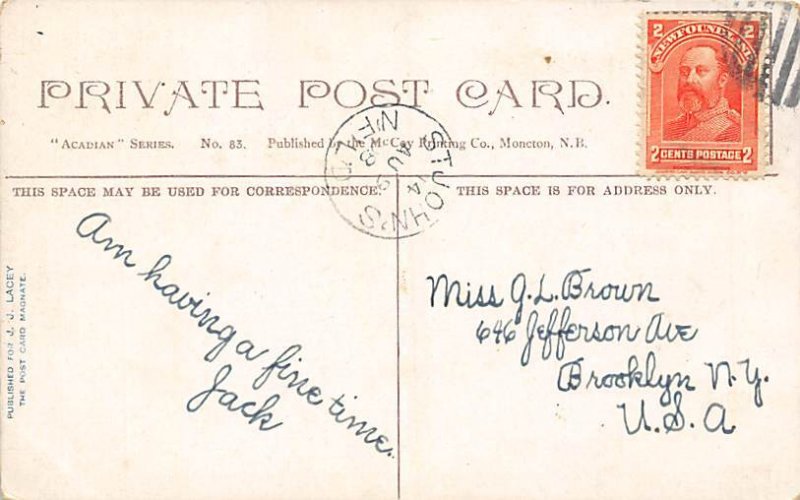 PRIVATE POST CARD.
"ACADIAN" SERIES. No. 83. Published by the McCoy Printing Co., Moncton, N.B.
THIS SPACE MAY BE USED FOR CORRESPONDENCE.
THIS SPACE IS FOR ADDRESS ONLY.
2 NEWFOUNDLAND 2
2 CENTS POSTAGE 2
ST. JOHN'S
14
AU 9
NF'LD
Am having a fine time.
Jack
Miss G. L. Brown
646 Jefferson Ave
Brooklyn N.Y.
U.S.A
PUBLISHED FOR J. J. LACEY
THE POST CARD MAGNATE.